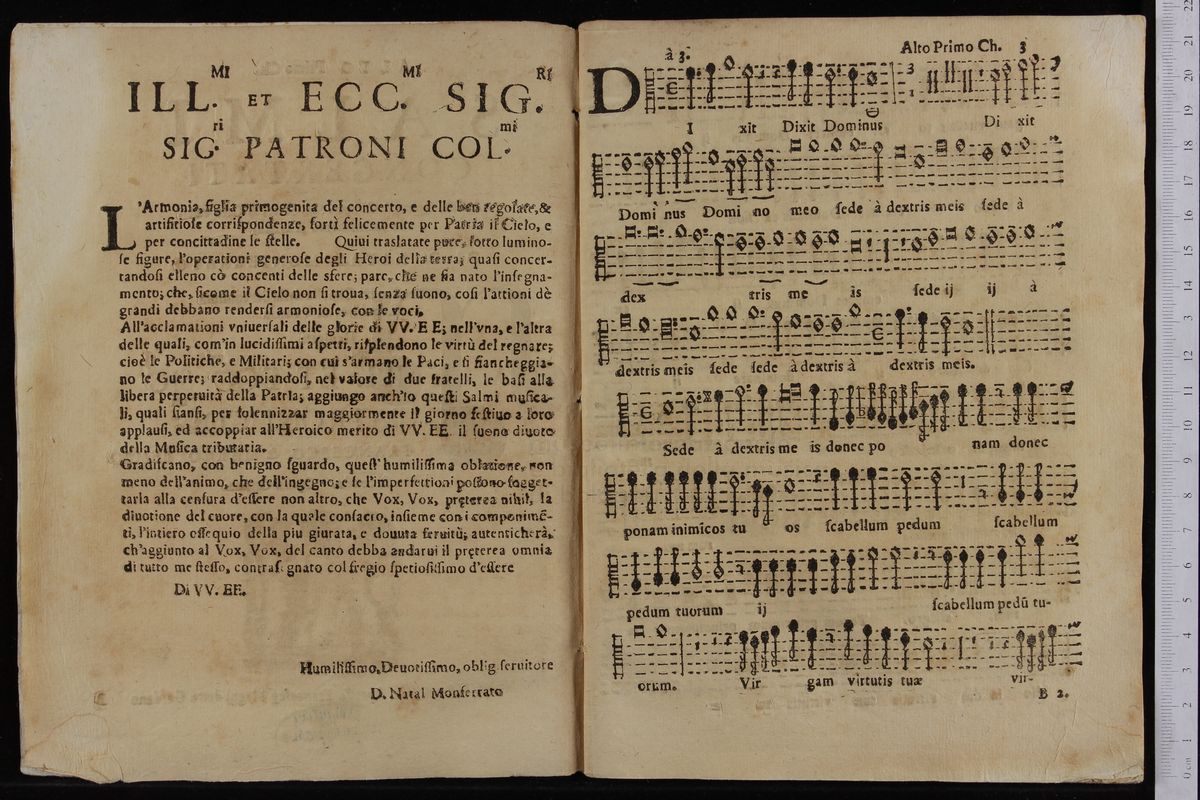 MI MI RI
ILL. ET ECC. SIG.
ri mi
SIG. PATRONI COL.
L'Armonia, figlia primogenita del concerto, e delle ben regolate, &
artifitiose corrispondenze, sortì felicemente per Patria il Cielo, e
per concittadine le stelle. Quiui traslatate pure, sotto lumino-
se figure, l'operationi generose degli Heroi della terra; quasi concer-
tandosi elleno cò concenti delle sfere; pare, che ne sia nato l'insegna-
mento; che, sicome il Cielo non si troua, senza suono, così l'attioni dè
grandi debbano rendersi armoniose, con le voci.
All'acclamationi vniuersali delle glorie di VV. EE; nell'vna, e l'altra
delle quali, com'in lucidissimi aspetti, risplendono le virtù del regnare;
cioè le Politiche, e Militari; con cui s'armano le Paci, e si fiancheggia-
no le Guerre; raddoppiandosi, nel valore di due fratelli, le basi alla
libera perpetuità della Patria; aggiungo anch'io questi Salmi musica-
li, quali siansi, per solennizzar maggiormente il giorno festiuo a loro
applausi, ed accoppiar all'Heroico merito di VV. EE. il suono diuoto
della Musica tributaria.
Gradiscano, con benigno sguardo, quest'humilissima oblatione, non
meno dell'animo, che dell'ingegno; e se l'imperfettioni possono sogget-
tarla alla censura d'essere non altro, che Vox, Vox, pręterea nihil, la
diuotione del cuore, con la quale consacro, insieme con i componimē-
ti, l'intiero ossequio della piu giurata, e douuta seruitù; autenticherà,
ch'aggiunto al Vox, Vox, del canto debba andarui il pręterea omnia
di tutto me stesso, contrasegnato col fregio spetiosissimo d'essere
Di VV. EE.
Humilissimo, Deuotissimo, oblig. seruitore
D. Natal Monferrato
Alto Primo Ch. 3
à 3.
D
I xit Dixit Dominus Di xit
Domi nus Domi no meo sede à dextris meis sede à
dex tris me is sede ij ij à
dextris meis sede sede à dextris à dextris meis.
Sede à dextris me is donec po nam donec
ponam inimicos tu os scabellum pedum scabellum
pedum tuorum ij scabellum pedū tu-
orum. Vir gam virtutis tuæ vir-
B 2.